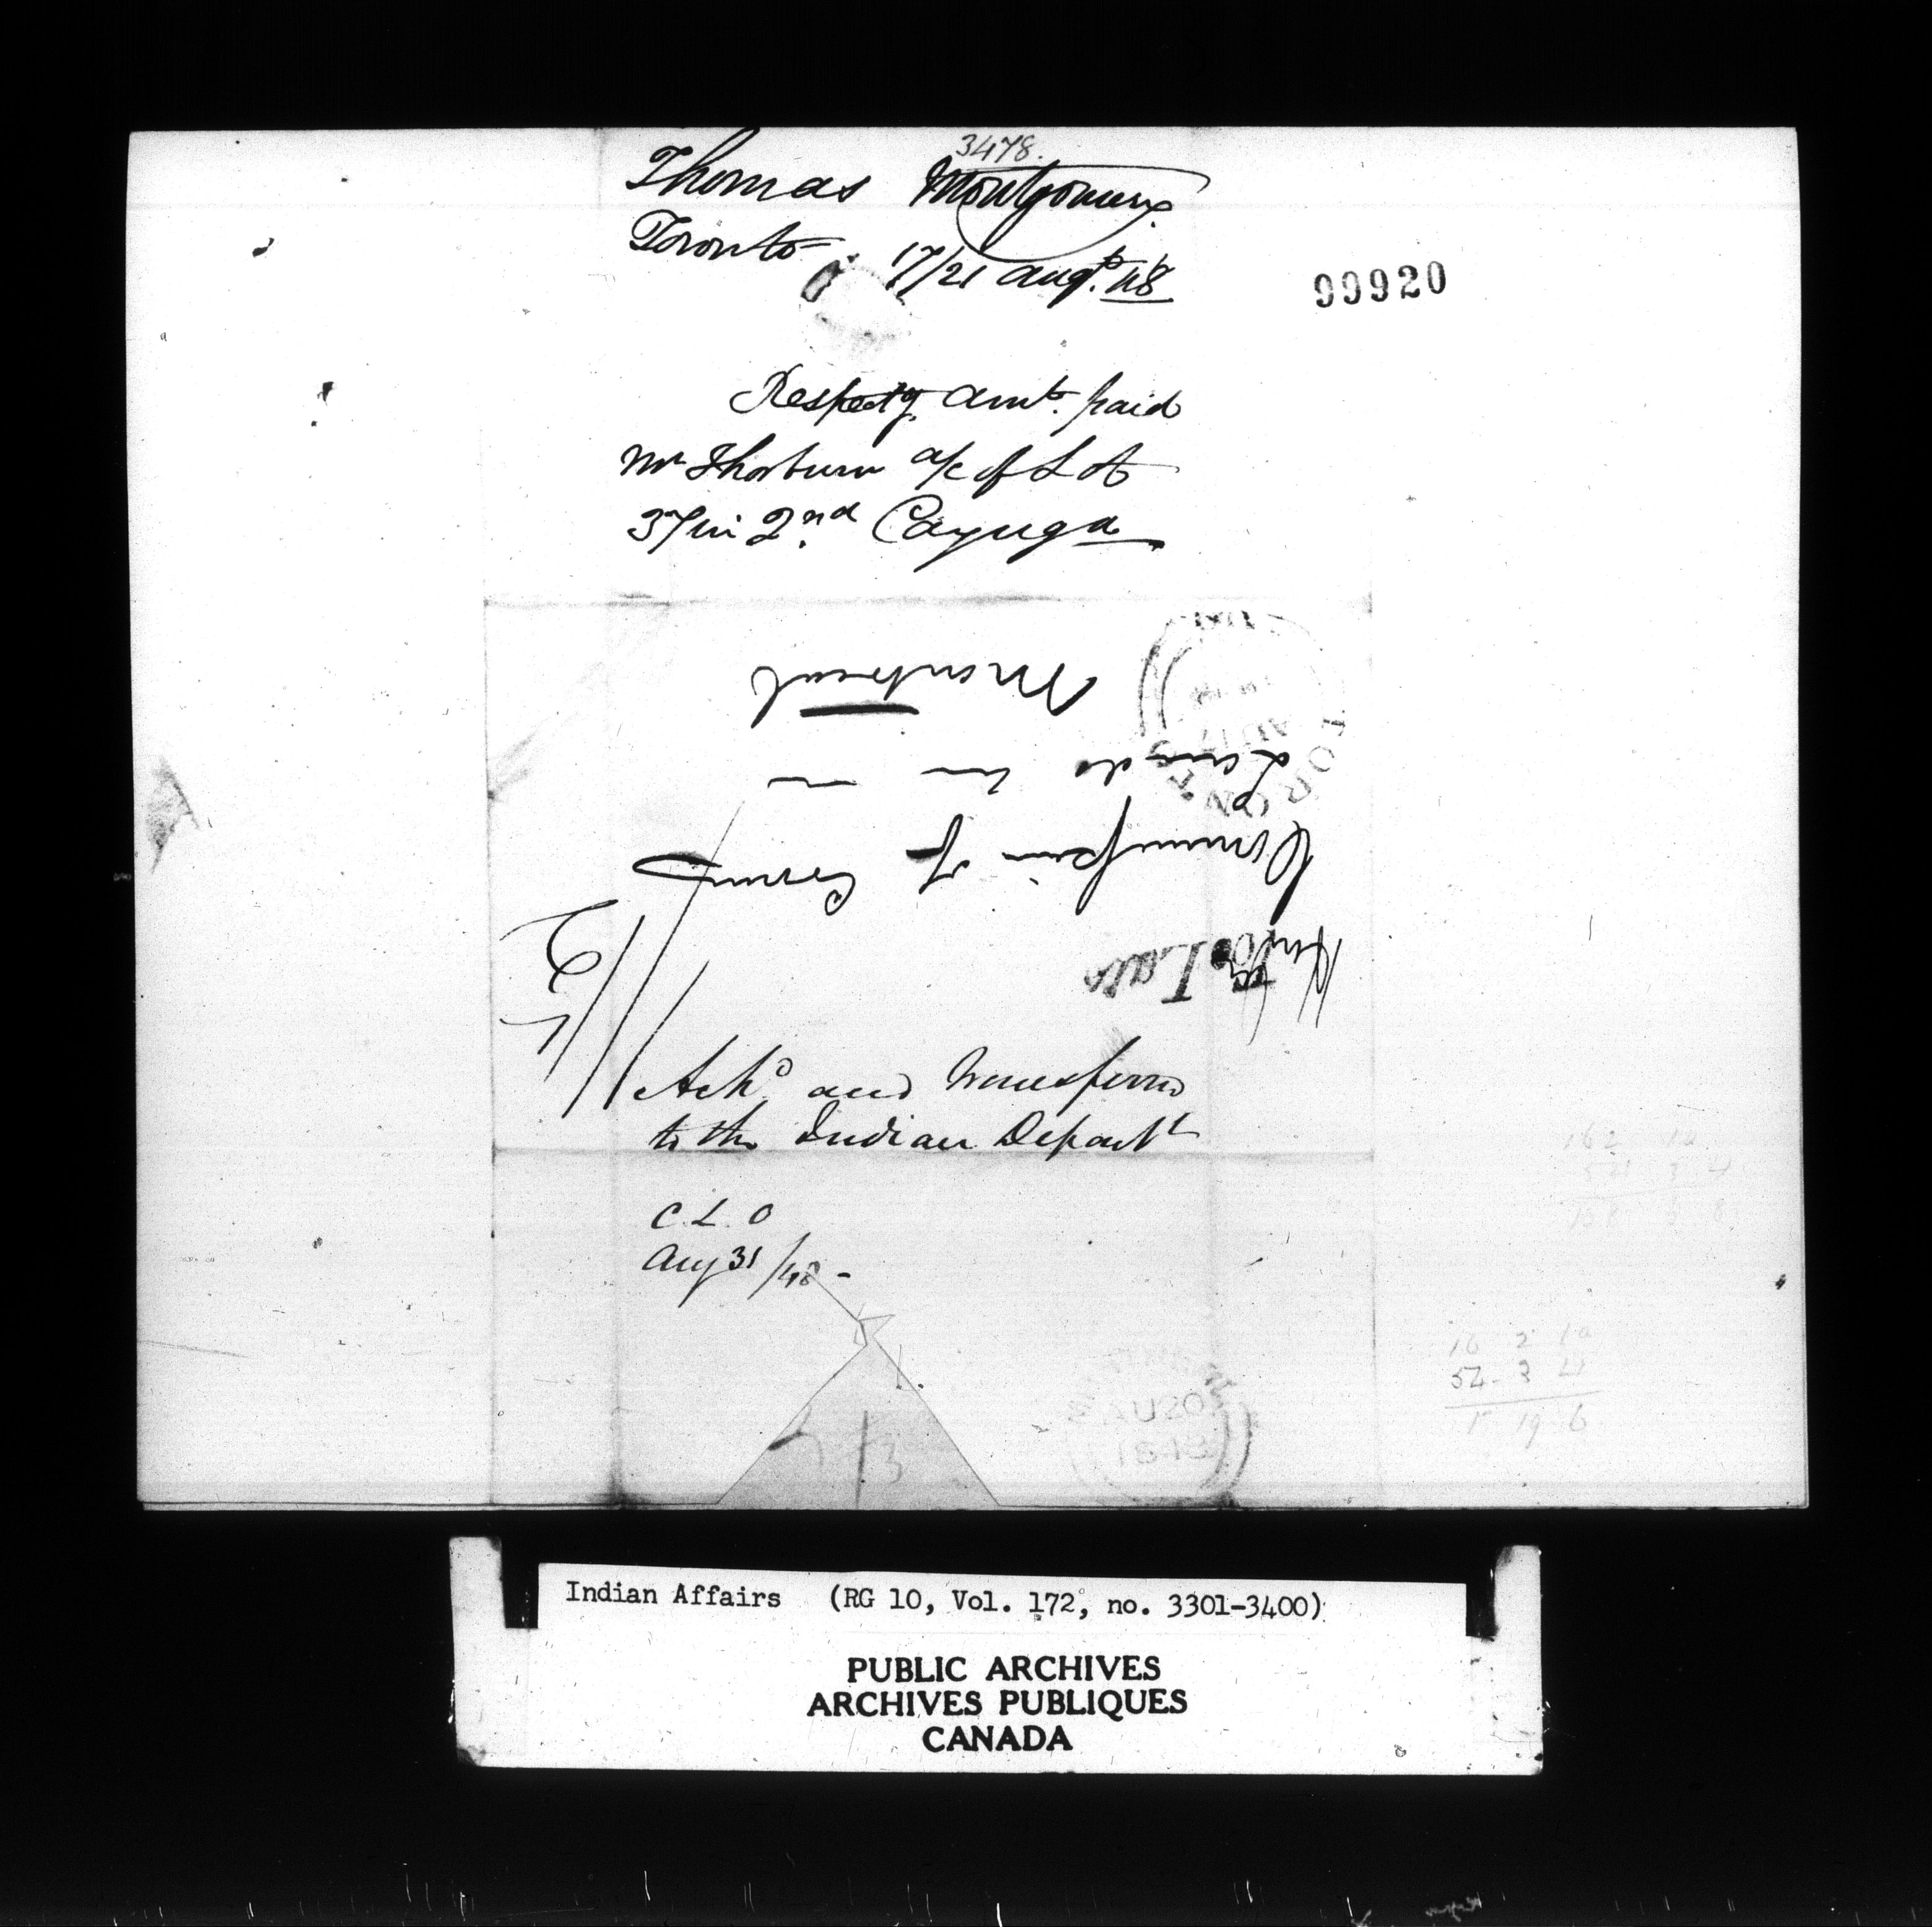 3478.
Thomas Montgomery
Toronto 17/21 Augt. 48
99920
Respectg. Amt. paid
Mr Thorburn a/c of Lot
37 in 2nd Cayuga
Commissioner of Crown
Lands
Montreal
TORONTO
Ackd. and transferred
to the Indian Departt
C. L. O
Aug 31/48 -
AU 20
1848
16 2 10
54 - 3 4
19 6
Indian Affairs (RG 10, Vol. 172, no. 3301-3400)
PUBLIC ARCHIVES
ARCHIVES PUBLIQUES
CANADA